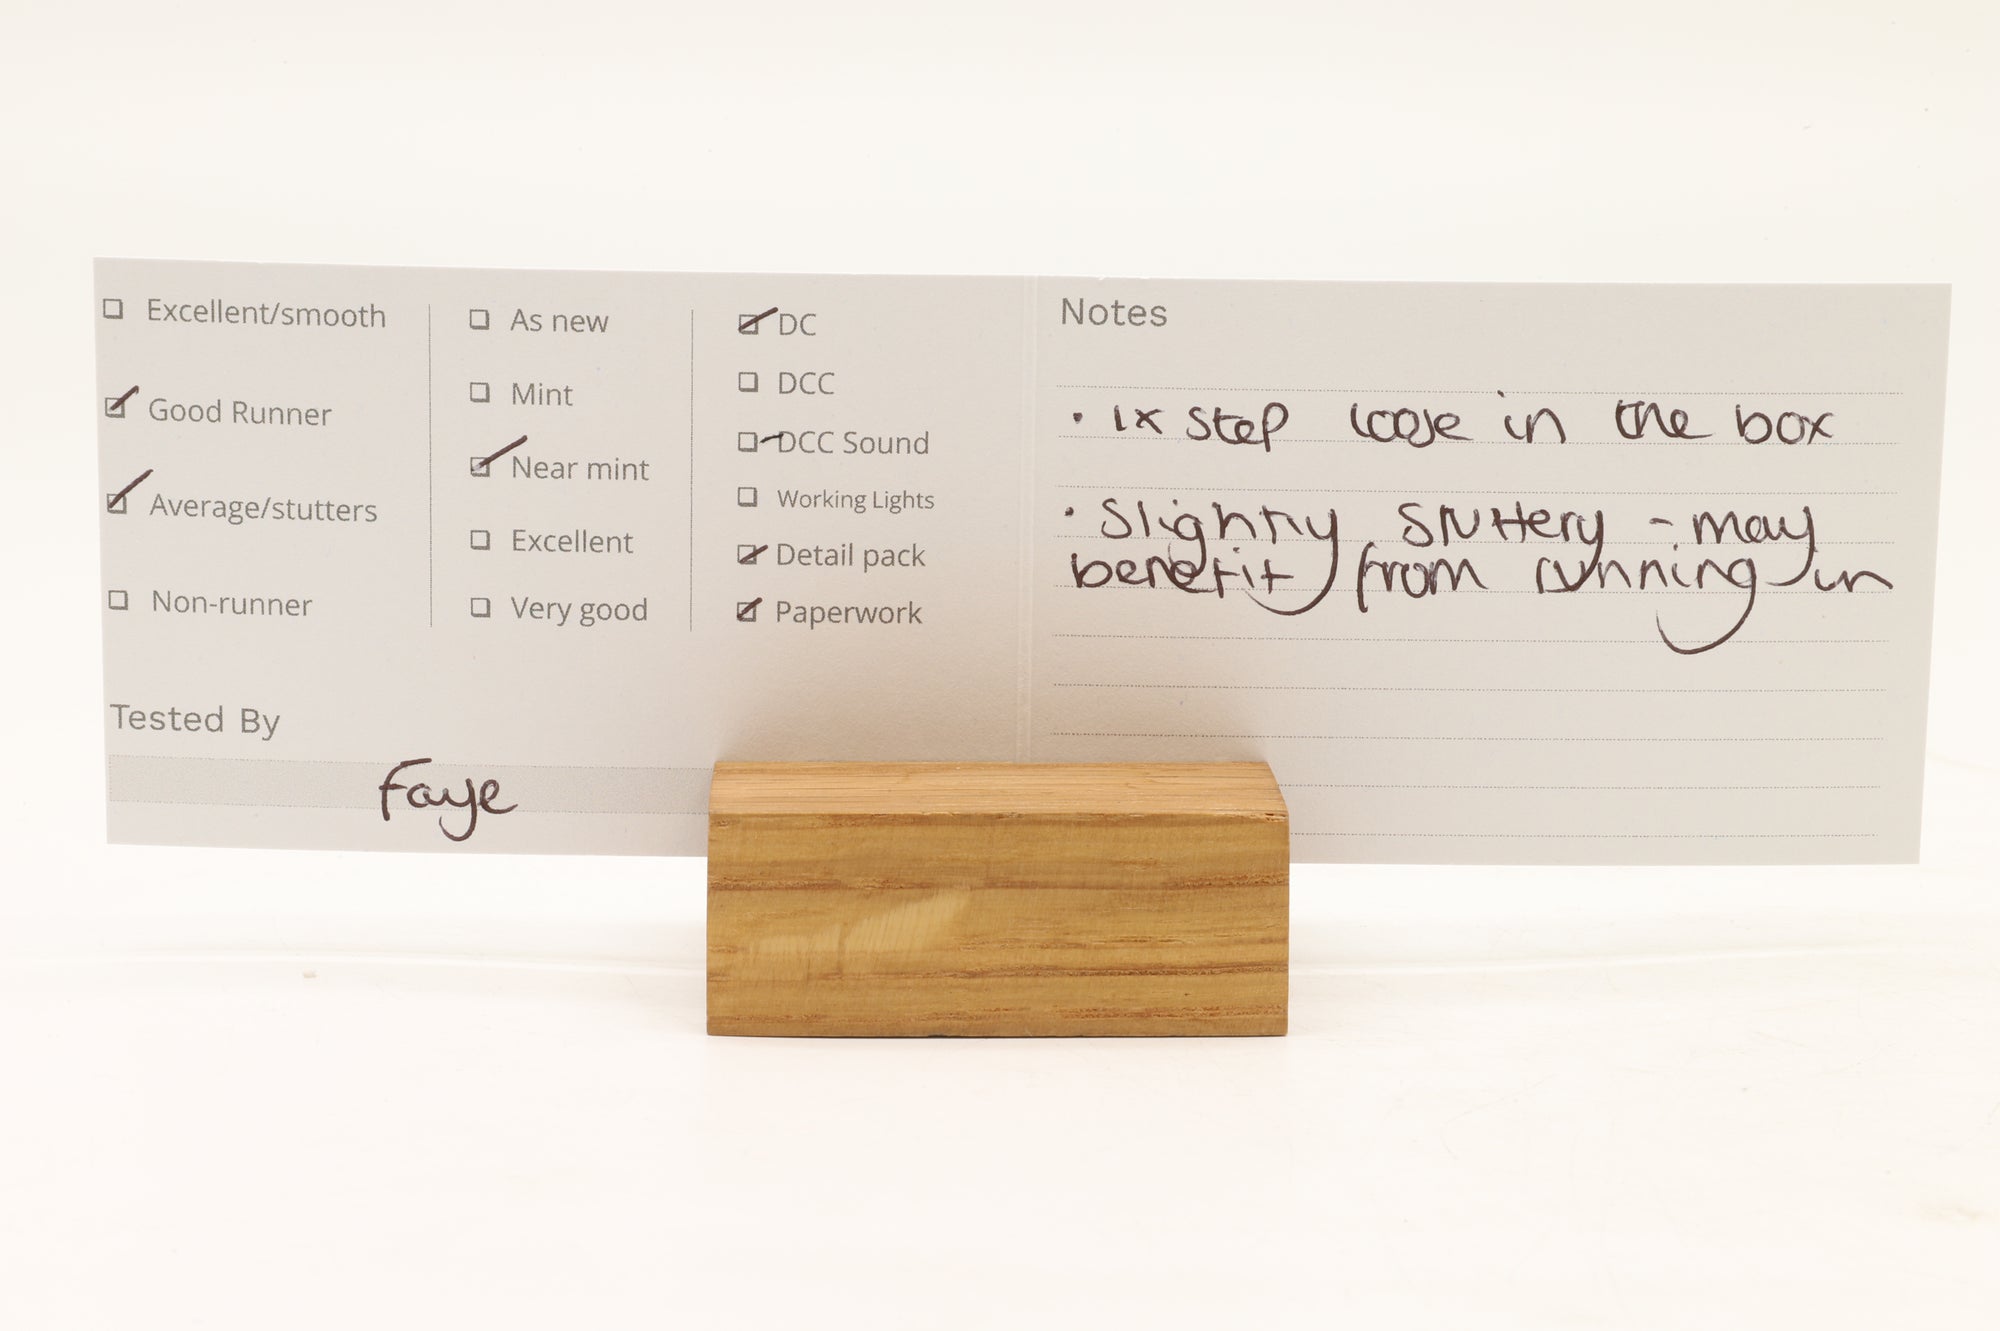 Excellent/smooth
Good Runner
Average/stutters
Non-runner
As new
Mint
Near mint
Excellent
Very good
DC
DCC
DCC Sound
Working Lights
Detail pack
Paperwork
Tested By
Faye
Notes
• 1x step loose in the box
• Slightly stuttery - may
benefit from running in